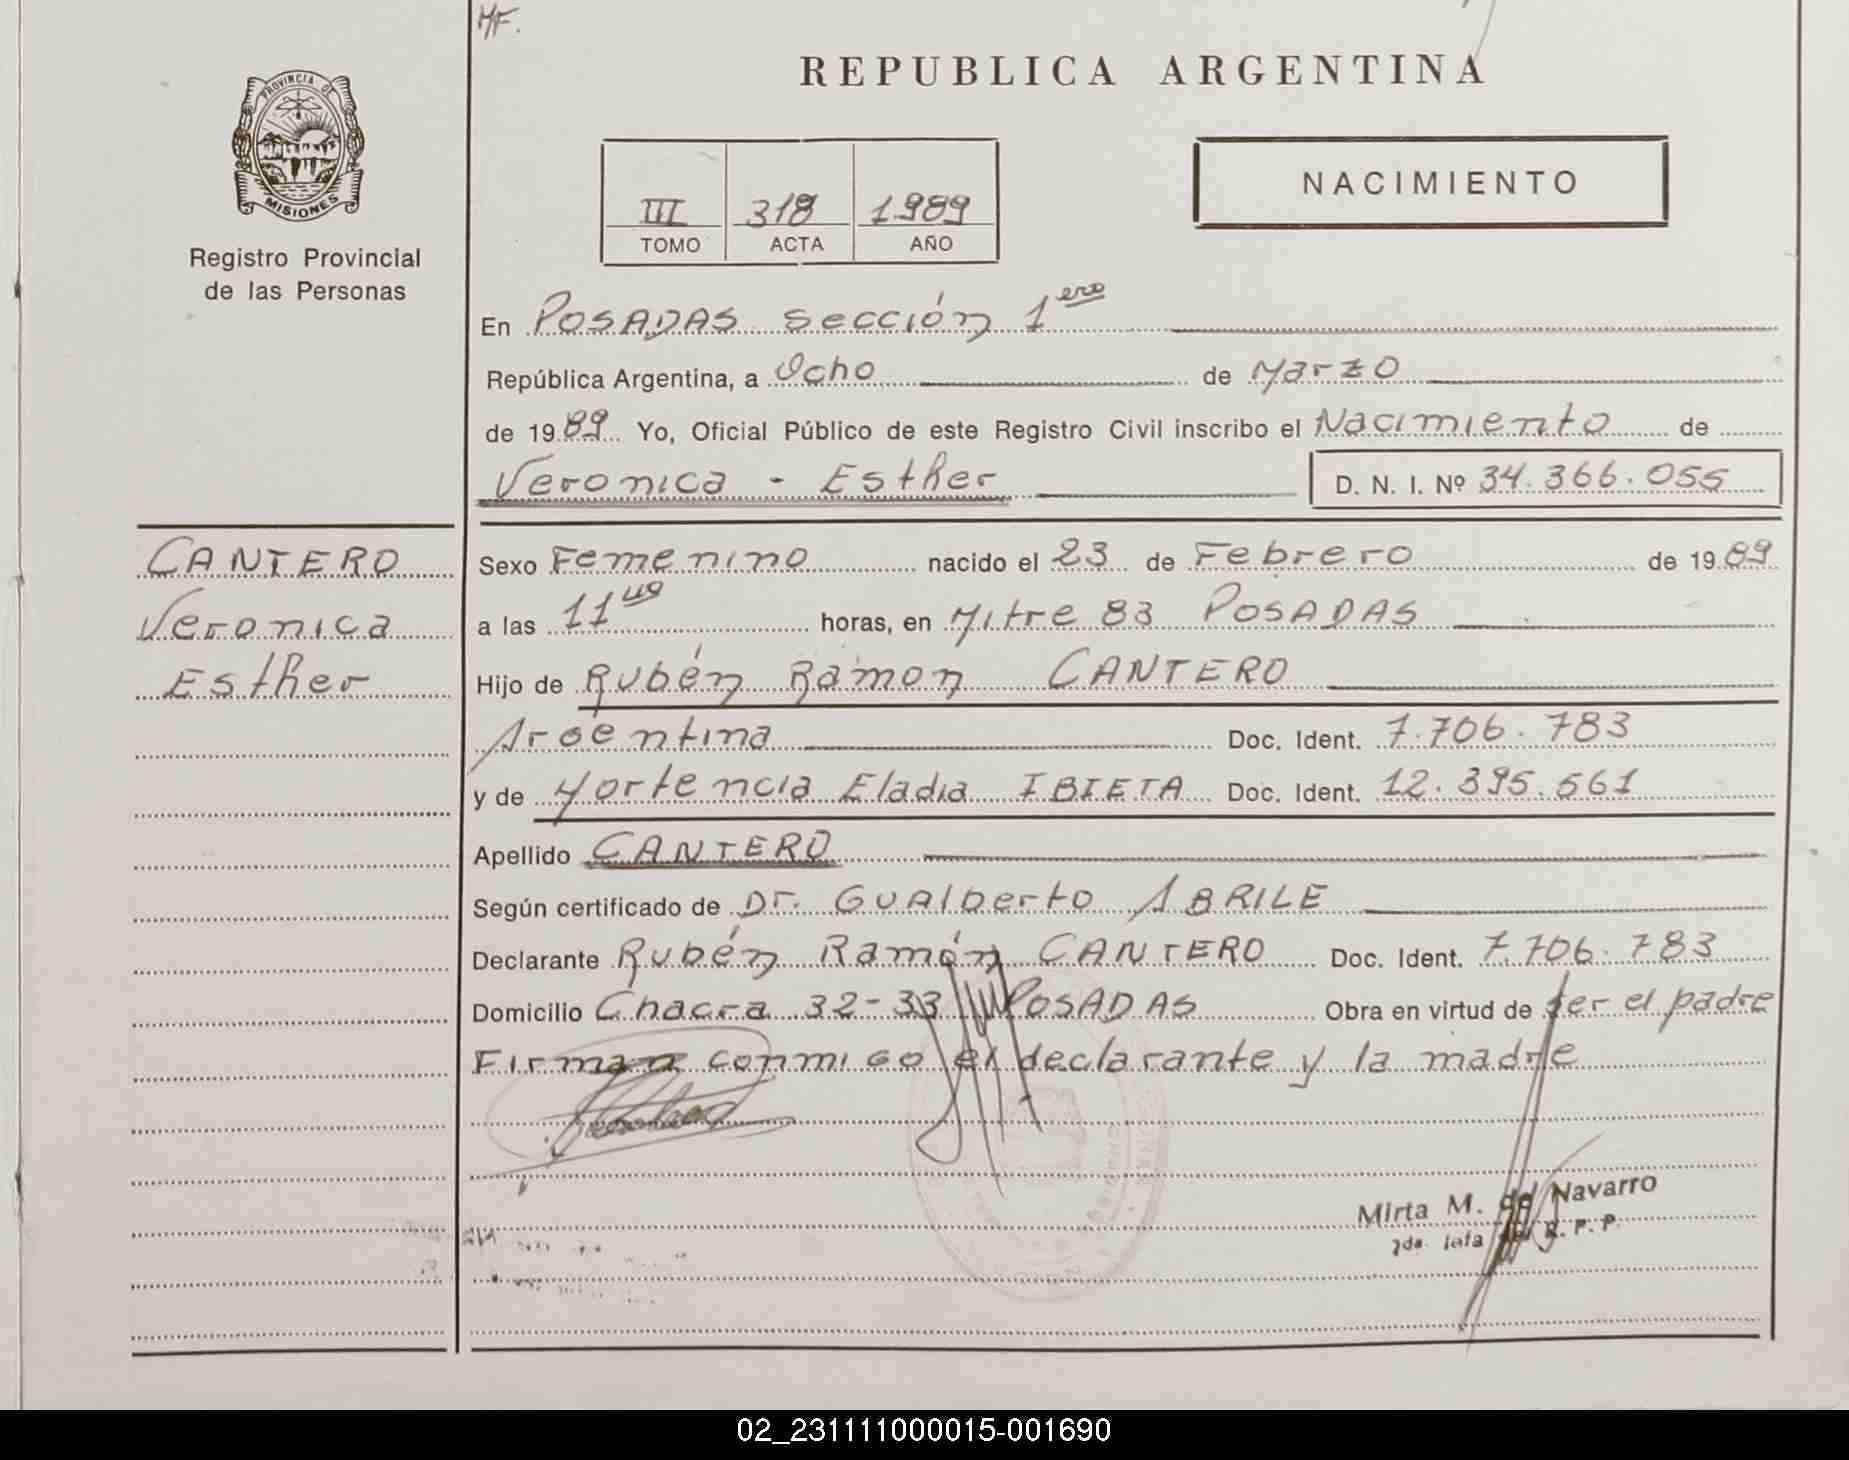 HF.
PROVINCIA DE
MISIONES
Registro Provincial
de las Personas
REPUBLICA ARGENTINA
III 318 1989
TOMO ACTA AÑO
NACIMIENTO
En POSADAS sección 1ero
República Argentina, a Ocho de Marzo
de 1989 Yo, Oficial Público de este Registro Civil inscribo el Nacimiento de
Veronica - Esther D. N. I. Nº 34.366.055
CANTERO
Veronica
Esther
Sexo Femenino nacido el 23 de Febrero de 1989
a las 11 horas, en Mitre 83 POSADAS
Hijo de Rubén Ramón CANTERO
Argentina Doc. Ident. 7.706.783
y de Hortencia Eladia IBIETA Doc. Ident. 12.395.561
Apellido CANTERO
Según certificado de Dr. Gualberto ABRILE
Declarante Rubén Ramón CANTERO Doc. Ident. 7.706.783
Domicilio Chacra 32-33 POSADAS Obra en virtud de ser el padre
Firman conmigo el declarante y la madre
Mirta M. de Navarro
2da. Jefa del R. P. P.
02_231111000015-001690